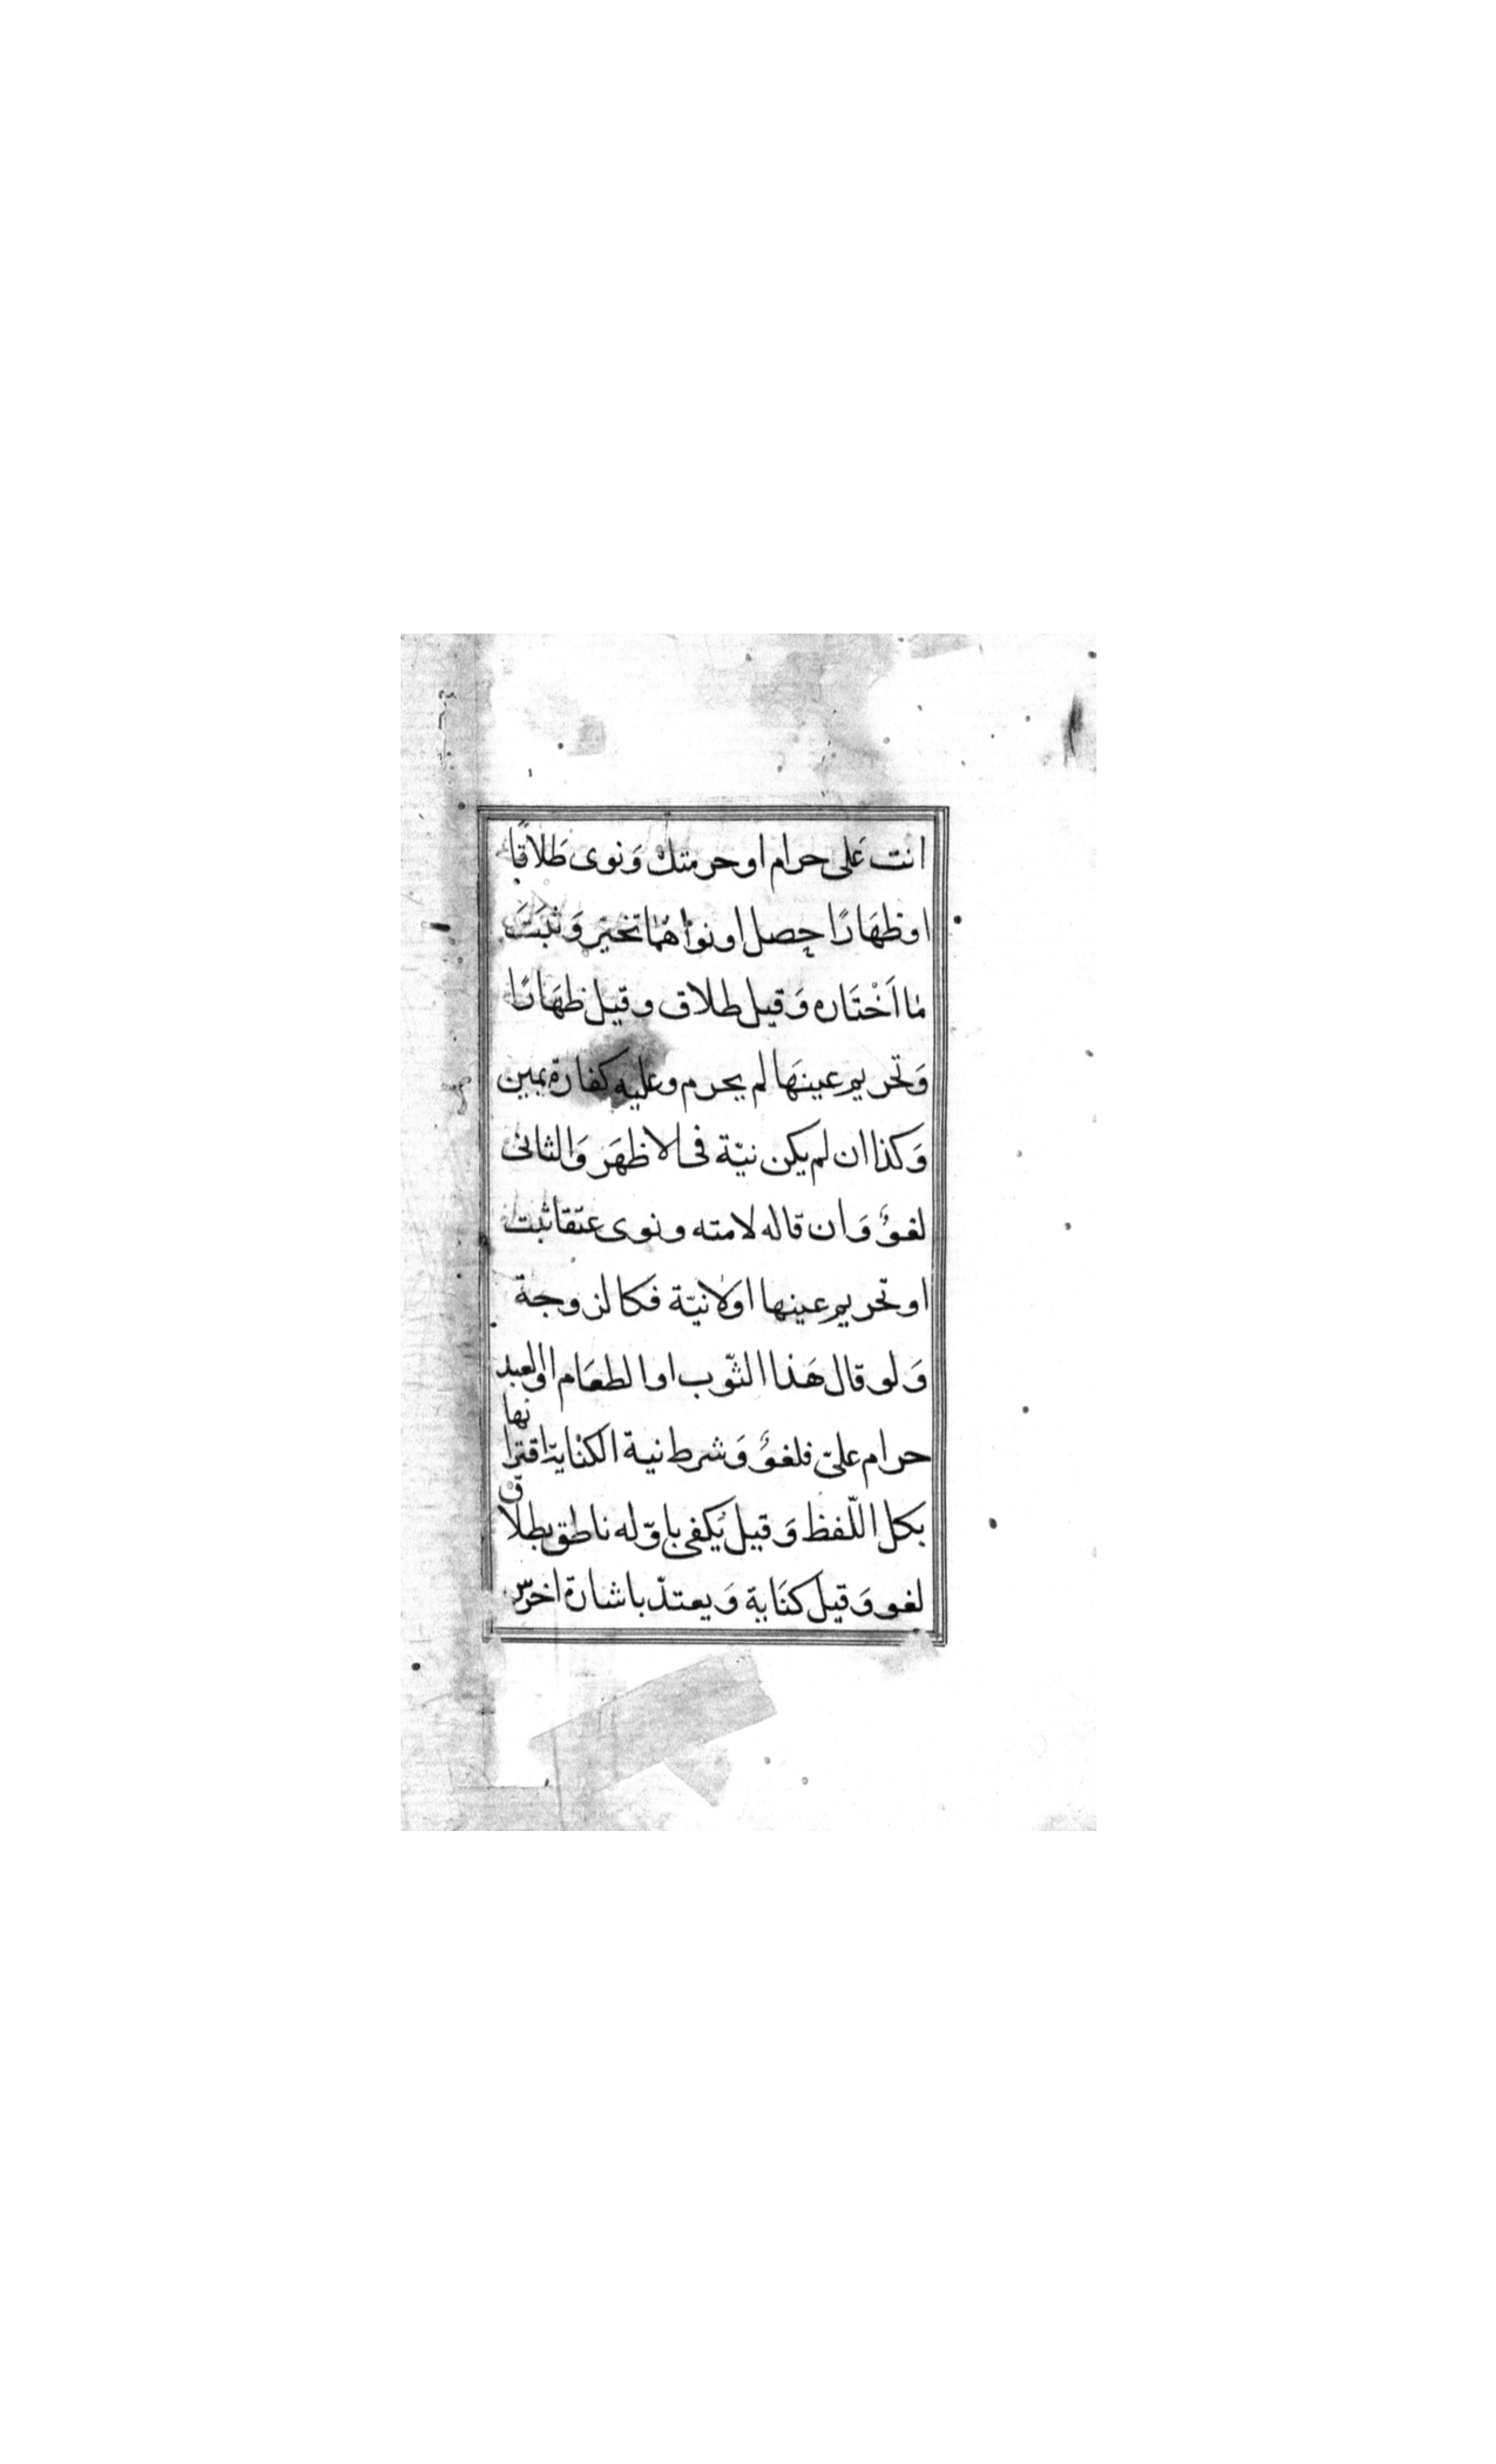 انت عَلى حرام او حرمتك وَنوى طَلاقًا
او ظهَارًا حصل او نواهمَا تخير وَثبَتَ
مَا اَخْتَاره وَقيل طلاق وقيل ظهَارًا
وَتحريم عينهَا لم يحرم وعليه كفارة يمين
وَكذا ان لم يكن نيّة فى الاظهَر وَالثانى
لغوٌ وَان قاله لامته ونوى عتقا ثبت
او تحريم عينها اولا نيّة فكالزوجة
وَلو قال هَذا الثّوب او الطعَام او العبد
حرام علىّ فلغوٌ وَشرط نية الكنايةِ اقترانها
بكل اللّفظ وَقيل يُكفى باوّله ناطق بطلاق
لغو وَقيل كنَاية وَيعتدّ باشارة اخرس